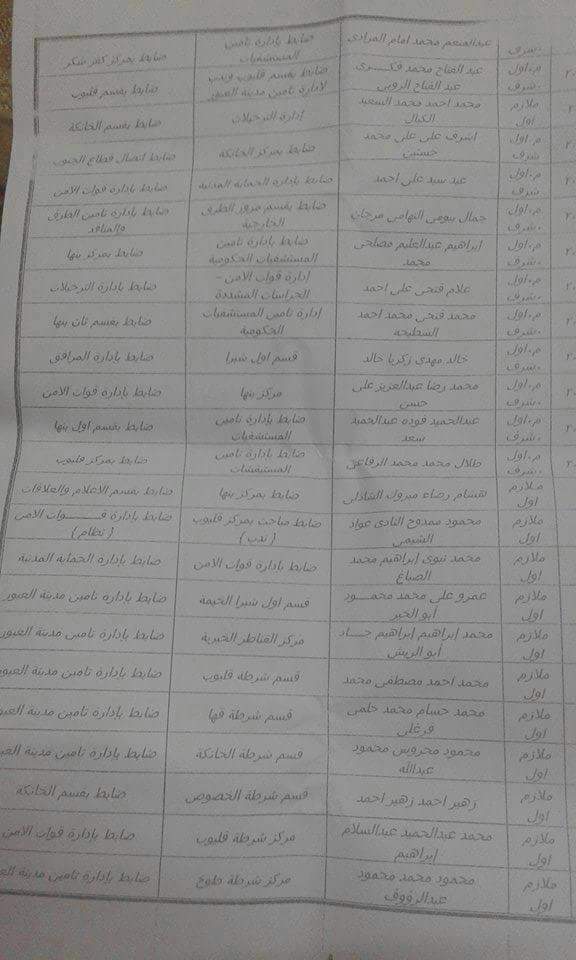 عبدالمنعم محمد امام المرادى
ضابط بإدارة تامين
المستشفيات
ضابط بمركز كفر شكر
شرف
م.اول
شرف
عبد الفتاح محمد فكرى
عبد الفتاح الروبى
ضابط بقسم قليوب وندب
لادارة تامين مدينة العبور
ضابط بقسم قليوب
ملازم
اول
محمد احمد محمد السعيد
الكيال
إدارة الترحيلات
ضابط بقسم الخانكة
م.اول
شرف
اشرف على على محمد
حسنين
ضابط بمركز الخانكة
ضابط اتصال قطاع الجنوب
م.اول
شرف
عيد سيد على احمد
ضابط بإدارة الحماية المدنية
ضابط بإدارة قوات الامن
م.اول
شرف
جمال بيومى التهامى مرجان
ضابط بقسم مرور الطرق
الخارجية
ضابط بإدارة تامين الطرق
والمنافذ
م.اول
شرف
إبراهيم عبدالعليم مصلحى
محمد
ضابط بإدارة تامين
المستشفيات الحكومية
ضابط بمركز بنها
م.اول
شرف
علام فتحى على احمد
إدارة قوات الامن -
الحراسات المشددة
ضابط بإدارة الترحيلات
م.اول
شرف
محمد فتحى محمد احمد
الشطيحه
إدارة تامين المستشفيات
الحكومية
ضابط بقسم ثان بنها
م.اول
شرف
خالد مهدى زكريا خالد
قسم اول شبرا
ضابط بإدارة المرافق
م.اول
شرف
محمد رضا عبدالعزيز على
حسن
مركز بنها
ضابط بإدارة قوات الامن
م.اول
شرف
عبدالحميد فوده عبدالحميد
سعد
ضابط بإدارة تامين
المستشفيات
ضابط بقسم اول بنها
م.اول
شرف
طلال محمد محمد الرفاعى
ضابط بإدارة تامين
المستشفيات
ضابط بمركز قليوب
ملازم
اول
هشام رضاء مبروك الشاذلى
ضابط بمركز بنها
ضابط بقسم الاعلام والعلاقات
ملازم
اول
محمود ممدوح النادى عواد
الشيمى
ضابط مباحث بمركز قليوب
( ندب )
ضابط بإدارة قوات الامن
( نظام )
ملازم
اول
محمد نبوى إبراهيم محمد
الصباغ
ضابط بإدارة قوات الامن
ضابط بإدارة الحماية المدنية
ملازم
اول
عمرو على محمد محمود
أبو الخير
قسم اول شبرا الخيمة
ضابط بإدارة تامين مدينة العبور
ملازم
اول
محمد إبراهيم إبراهيم جاد
أبو الريش
مركز القناطر الخيرية
ضابط بإدارة تامين مدينة العبور
ملازم
اول
محمد احمد مصطفى محمد
قسم شرطة قليوب
ضابط بإدارة تامين مدينة العبو
ملازم
اول
محمد حسام محمد حلمى
فرغلى
قسم شرطة قها
ضابط بإدارة تامين مدينة العبو
ملازم
اول
محمود محروس محمود
عبدالله
قسم شرطة الخانكة
ضابط بإدارة تامين مدينة العبو
ملازم
اول
زهير احمد زهير احمد
قسم شرطة الخصوص
ضابط بقسم الخانكة
ملازم
اول
محمد عبدالحميد عبدالسلام
إبراهيم
مركز شرطة قليوب
ضابط بإدارة قوات الامن
ملازم
اول
محمود محمد محمود
عبدالرؤوف
مركز شرطة طوخ
ضابط بإدارة تامين مدينة الع